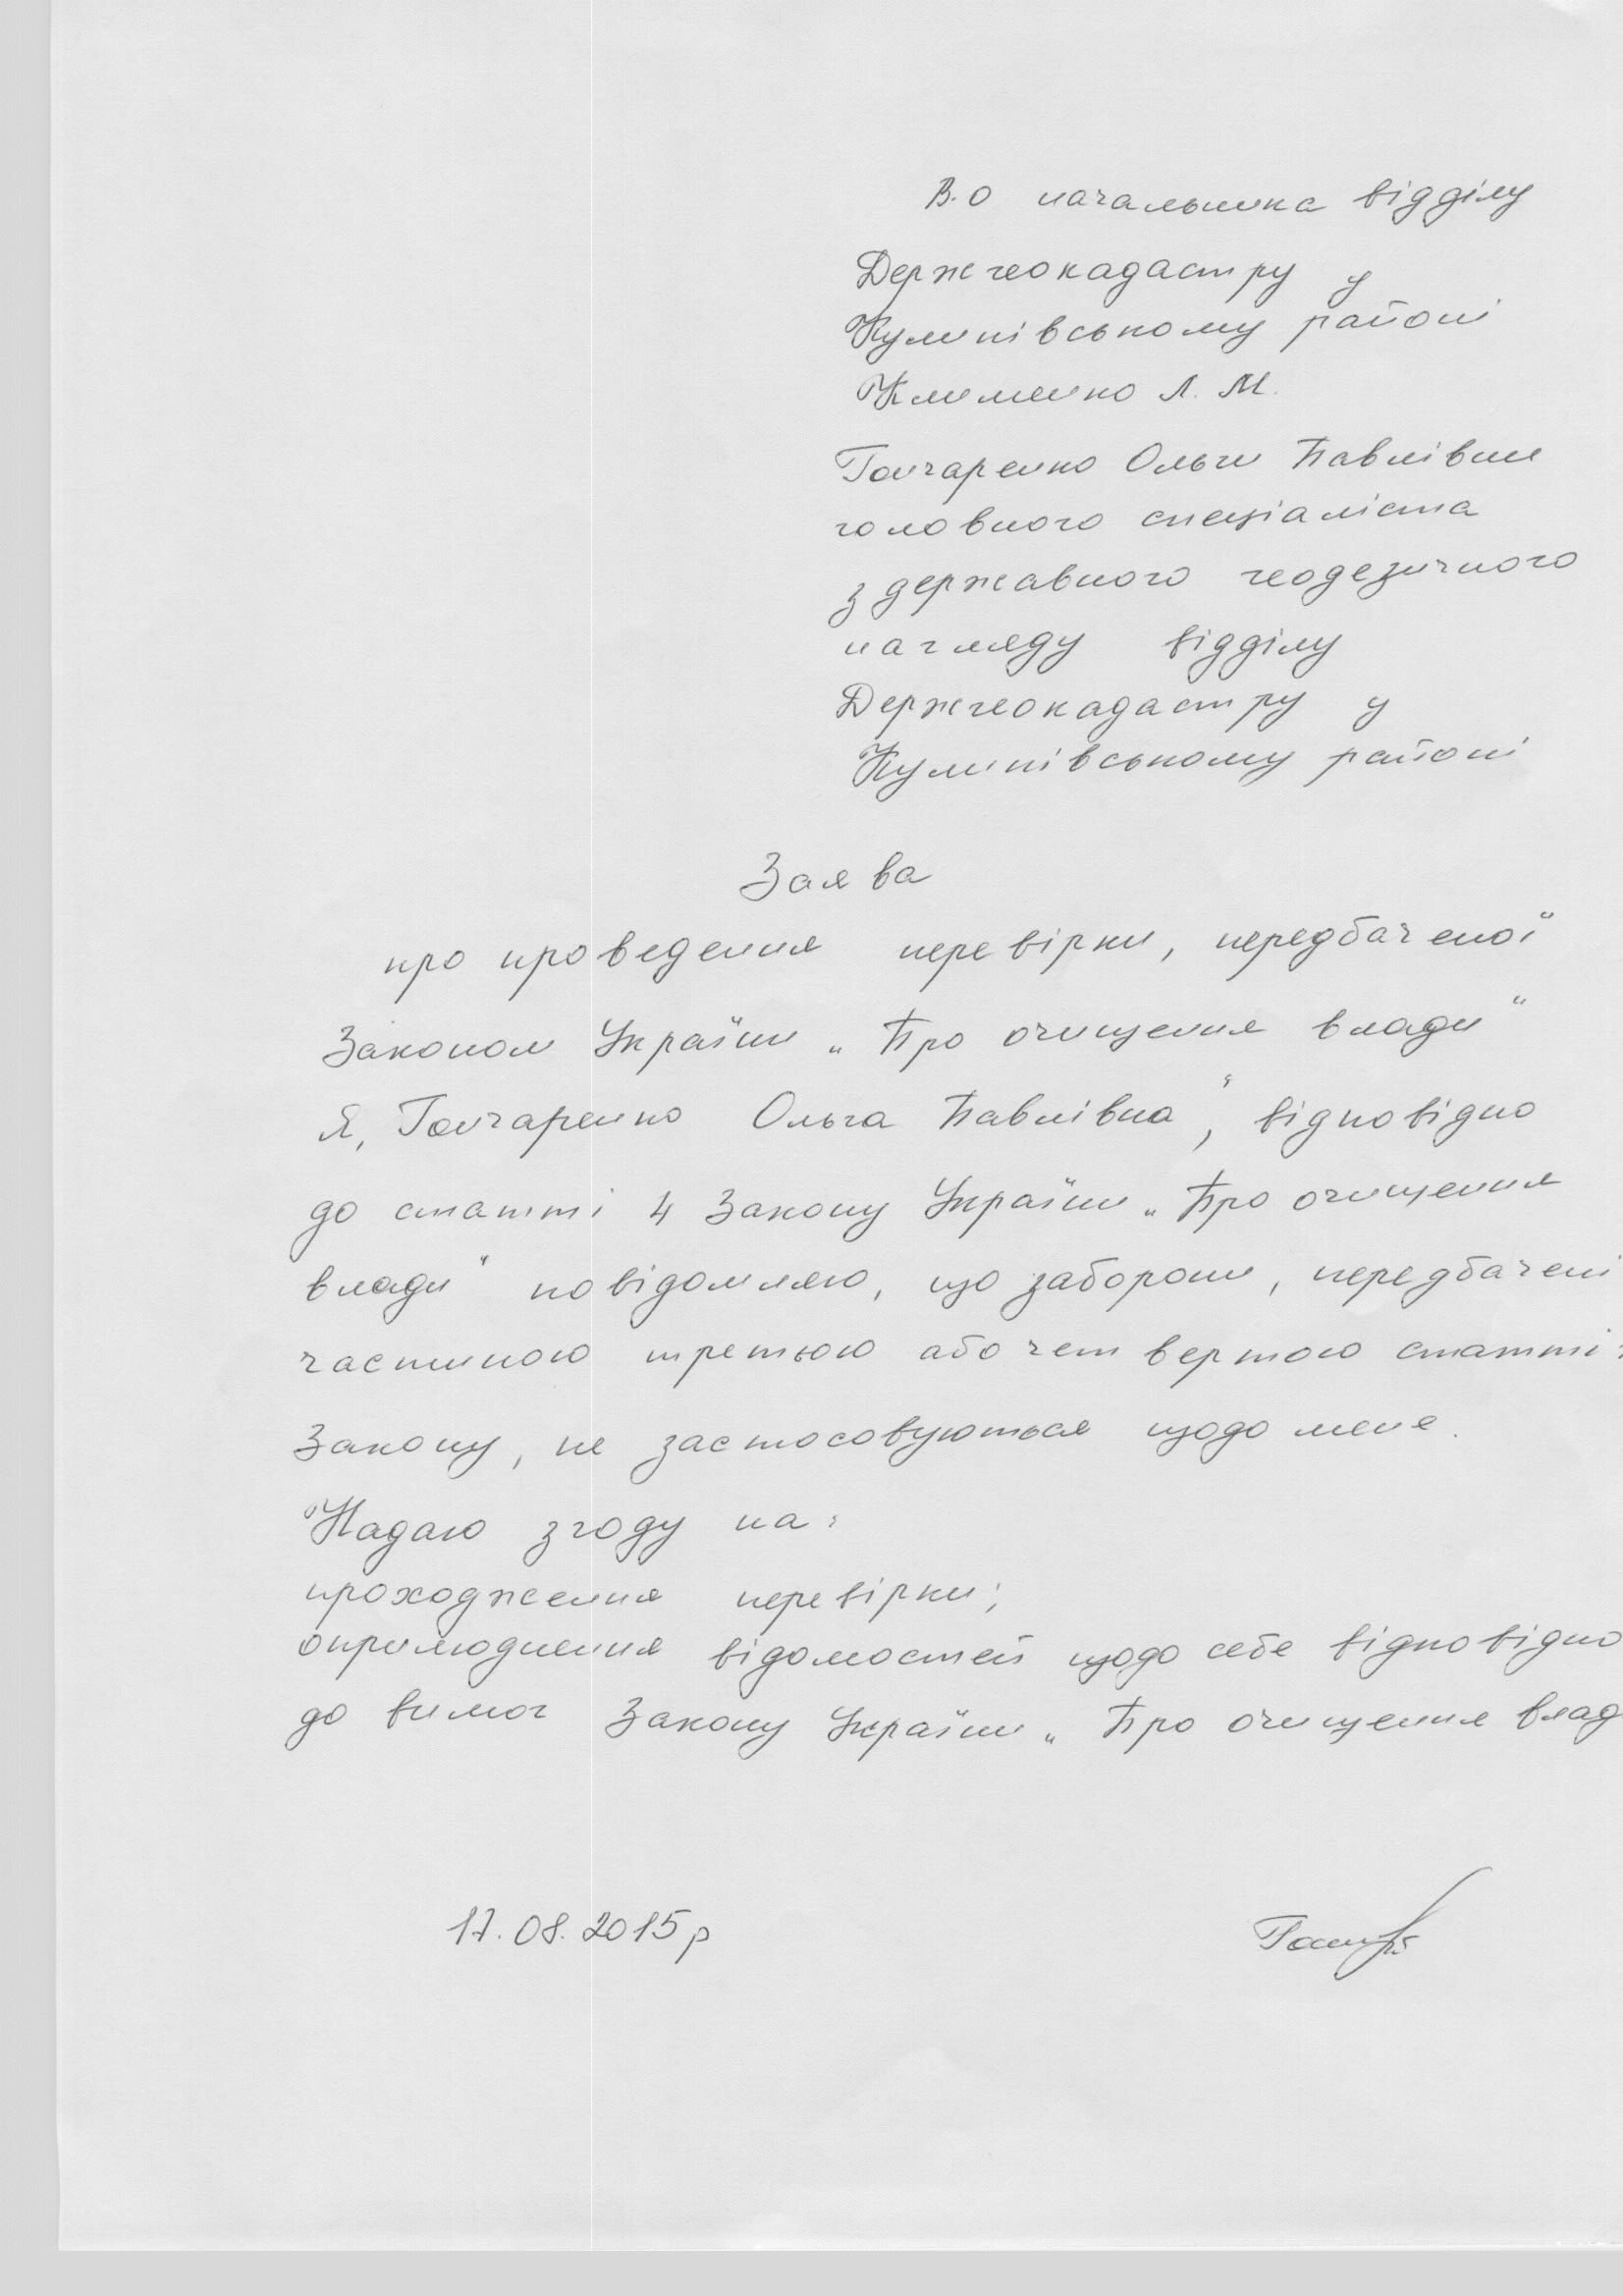 В.о начальника відділу
Держгеокадастру у
Куликівському районі
Клименко Л. М.
Гончаренко Ольги Павлівни
головного спеціаліста
з державного геодезичного
нагляду відділу
Держгеокадастру у
Куликівському районі
Заява
про проведення перевірки, передбаченої
Законом України „Про очищення влади“
Я, Гончаренко Ольга Павлівна“, відповідно
до статті 4 Закону України „Про очищення
влади“ повідомляю, що заборони, передбачені
частиною третьою або четвертою статті
Закону, не застосовуються щодо мене.
Надаю згоду на:
проходження перевірки;
оприлюднення відомостей щодо себе відповідно
до вимог Закону України „Про очищення влад
17.08.2015р